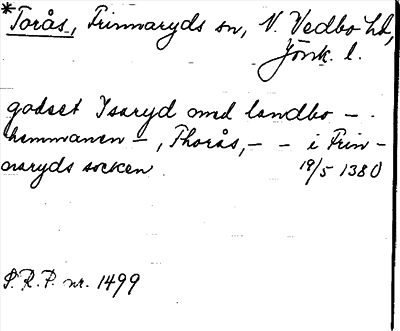 *Torås, Frinnaryds sn, N. Vedbo hd,
Jönk. l.
godset Isaryd med landbo -
hemmanen -, Thorås, - - i Frin-
naryds socken 19/5 1380
S.R.P. nr. 1499